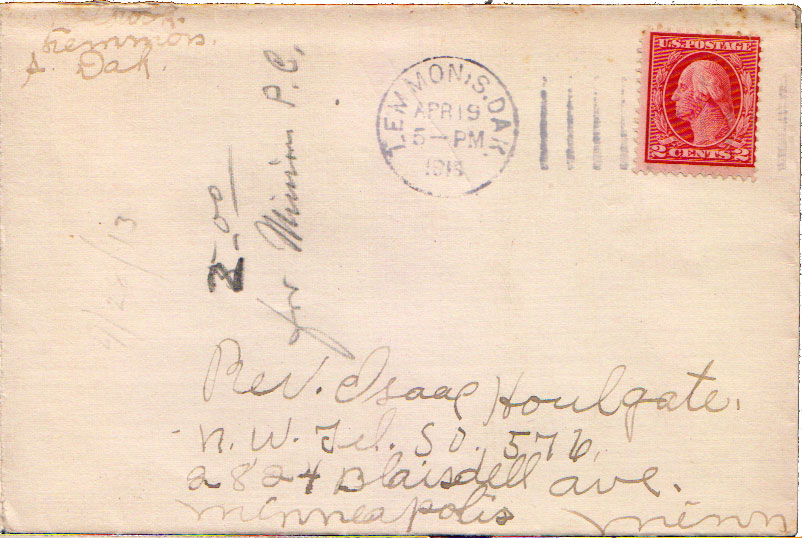 Lemmon.
S. Dak.
LEMMON, S. DAK.
APR 19
5 - PM
U.S. POSTAGE
2 CENTS 2
2.00
for Mission P.C.
Rev. Isaac Houlgate.
N. W. Tel. So. 576,
2824 Blaisdell ave.
Minneapolis Minn